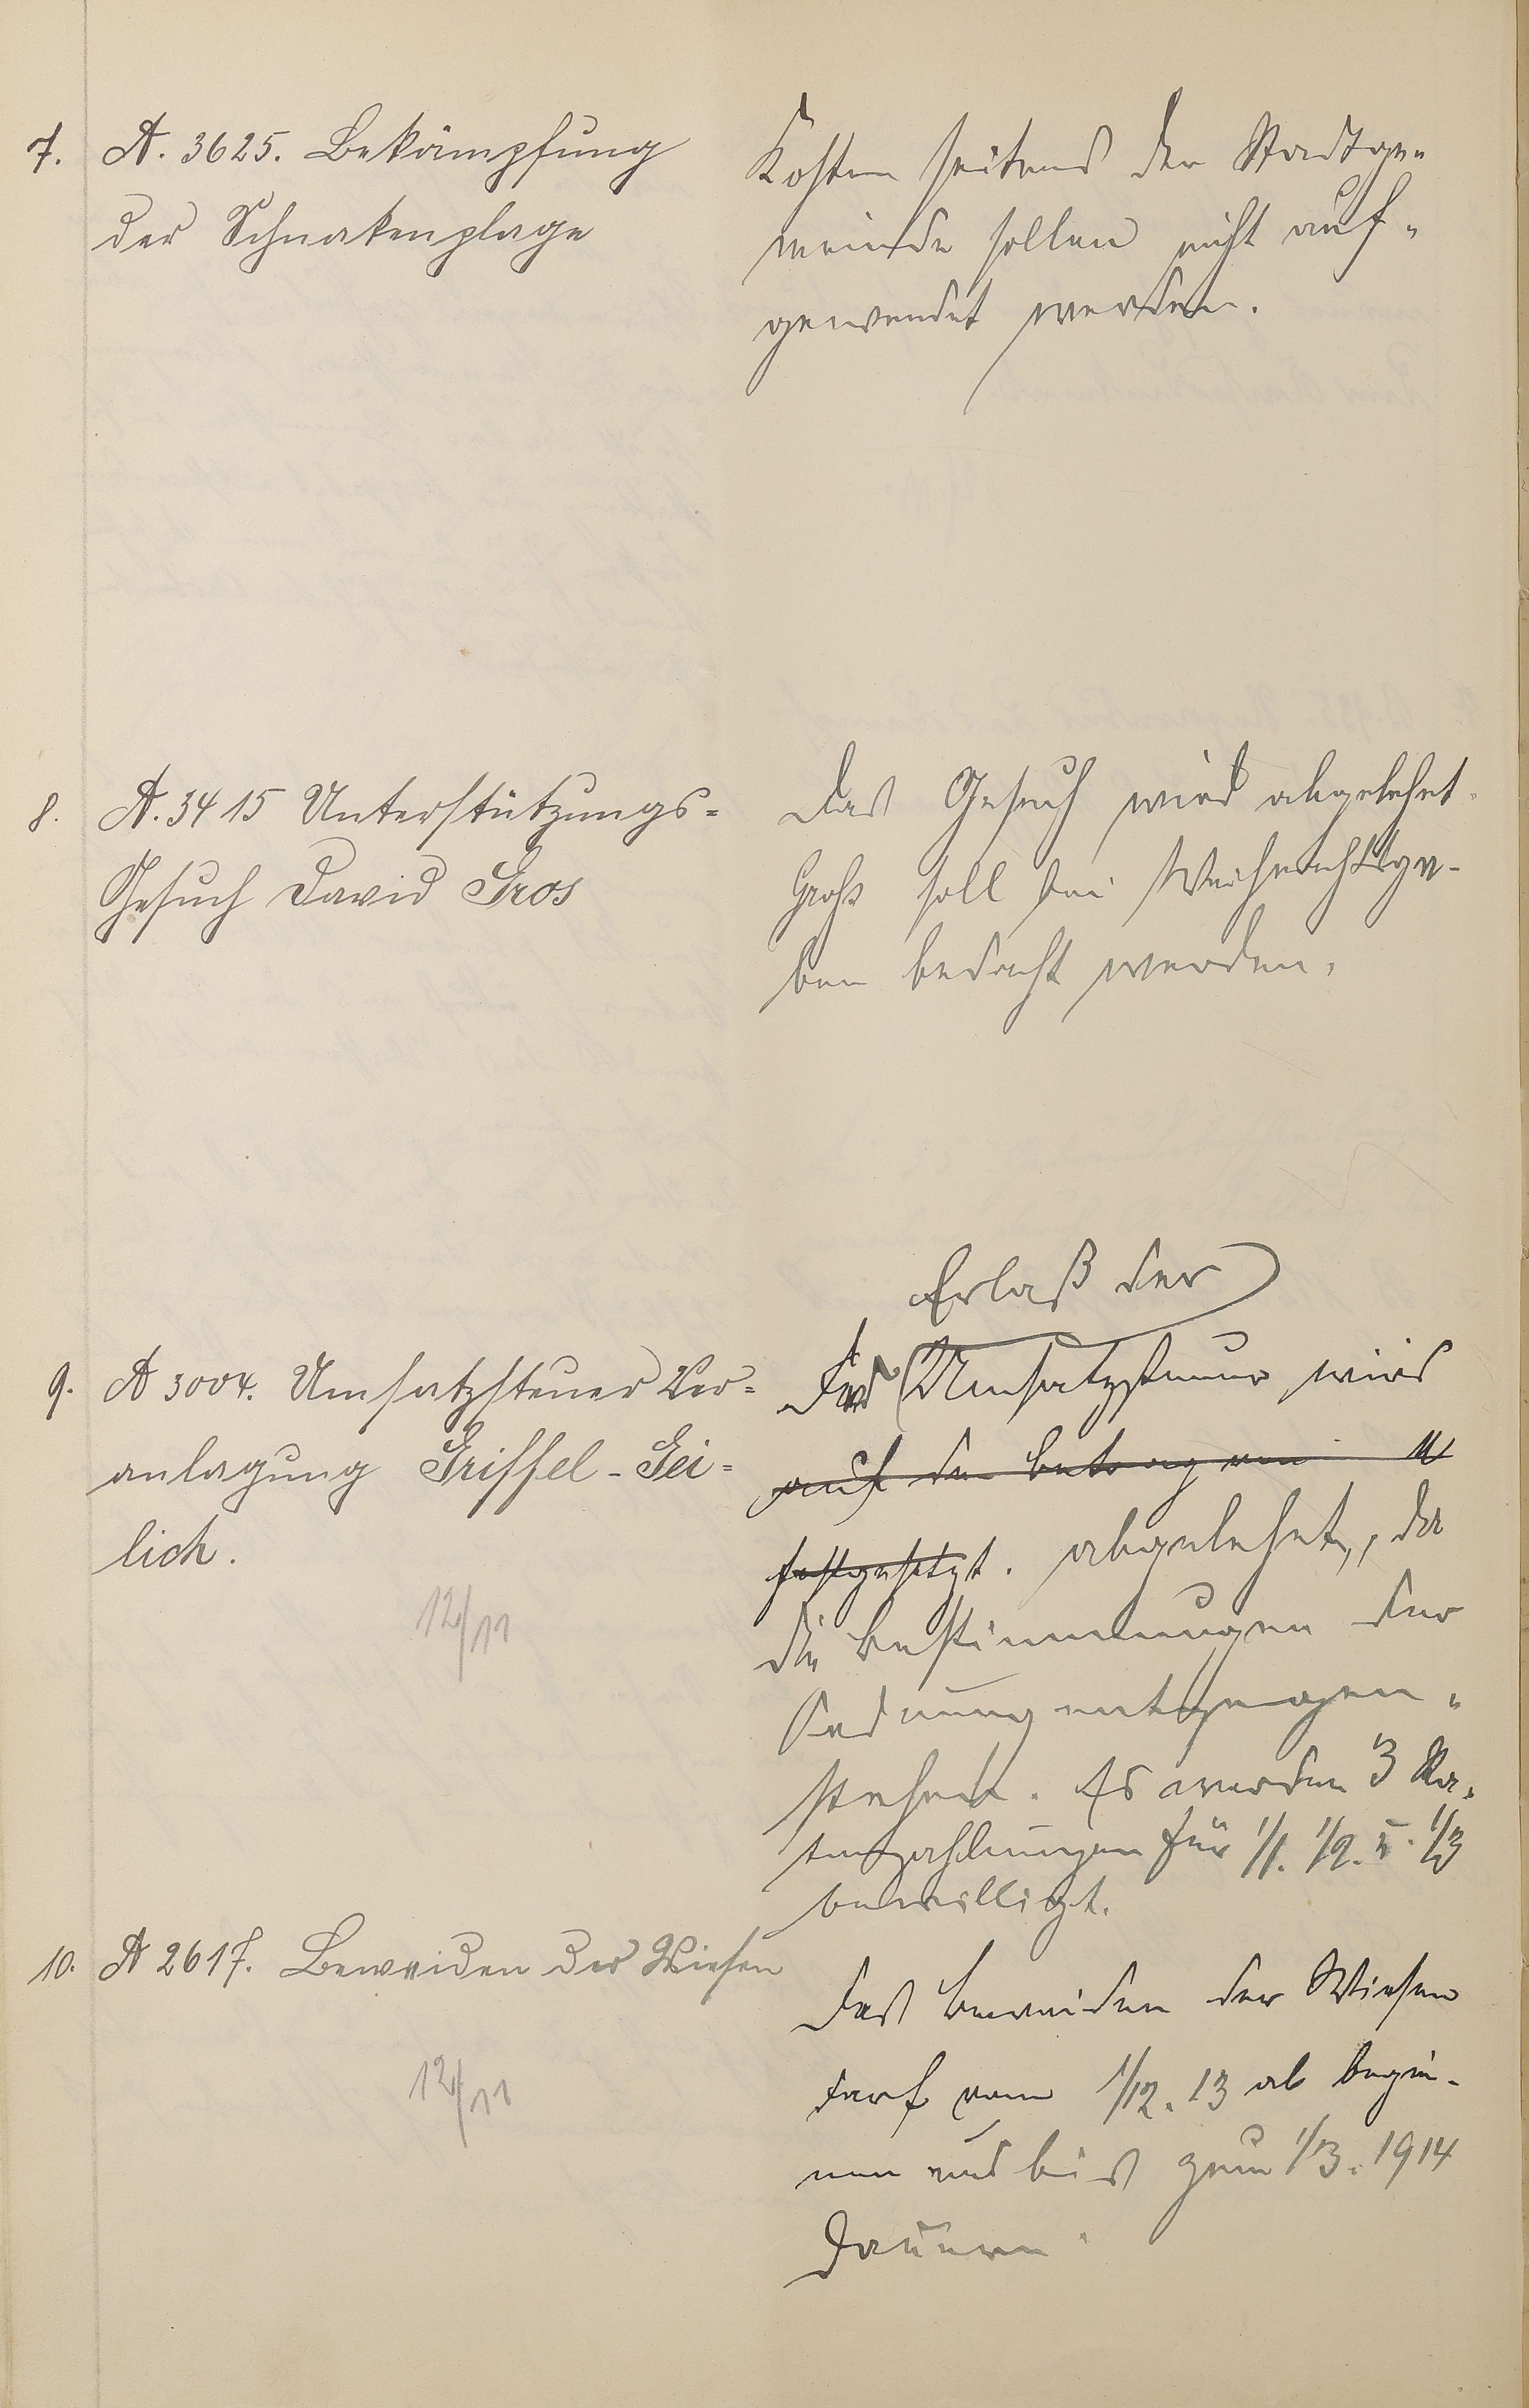 7. A. 3625. Bekämpfung
der Schnakenplage
Kosten seitens der Stadtge-
meinde sollen nicht auf-
gewendet werden.
8. A. 3415 Unterstützungs-
Gesuch David Gros
Das Gesuch wird abgelehnt.
Groß soll bei Weihnachtsga-
ben bedacht werden.
9. A 3004. Umsatzsteuer Ver-
anlagung Griffel-Gei-
lich.
12/11
Erlaß der
Der Umsatzsteuer wird
auf den Betrag von M
festgesetzt. abgelehnt, da
die Bestimmungen der
Ordnung entgegen-
stehen. Es werden 3 Ra-
tenzahlungen für 1/1. 1/2. u. 1/3
bewilligt.
10. A 2617. Beweiden der Wiesen
12/11
Das Beweiden der Wiesen
darf vom 1/12. 13 ab begin-
nen und bis zum 1/3. 1914
dauern.